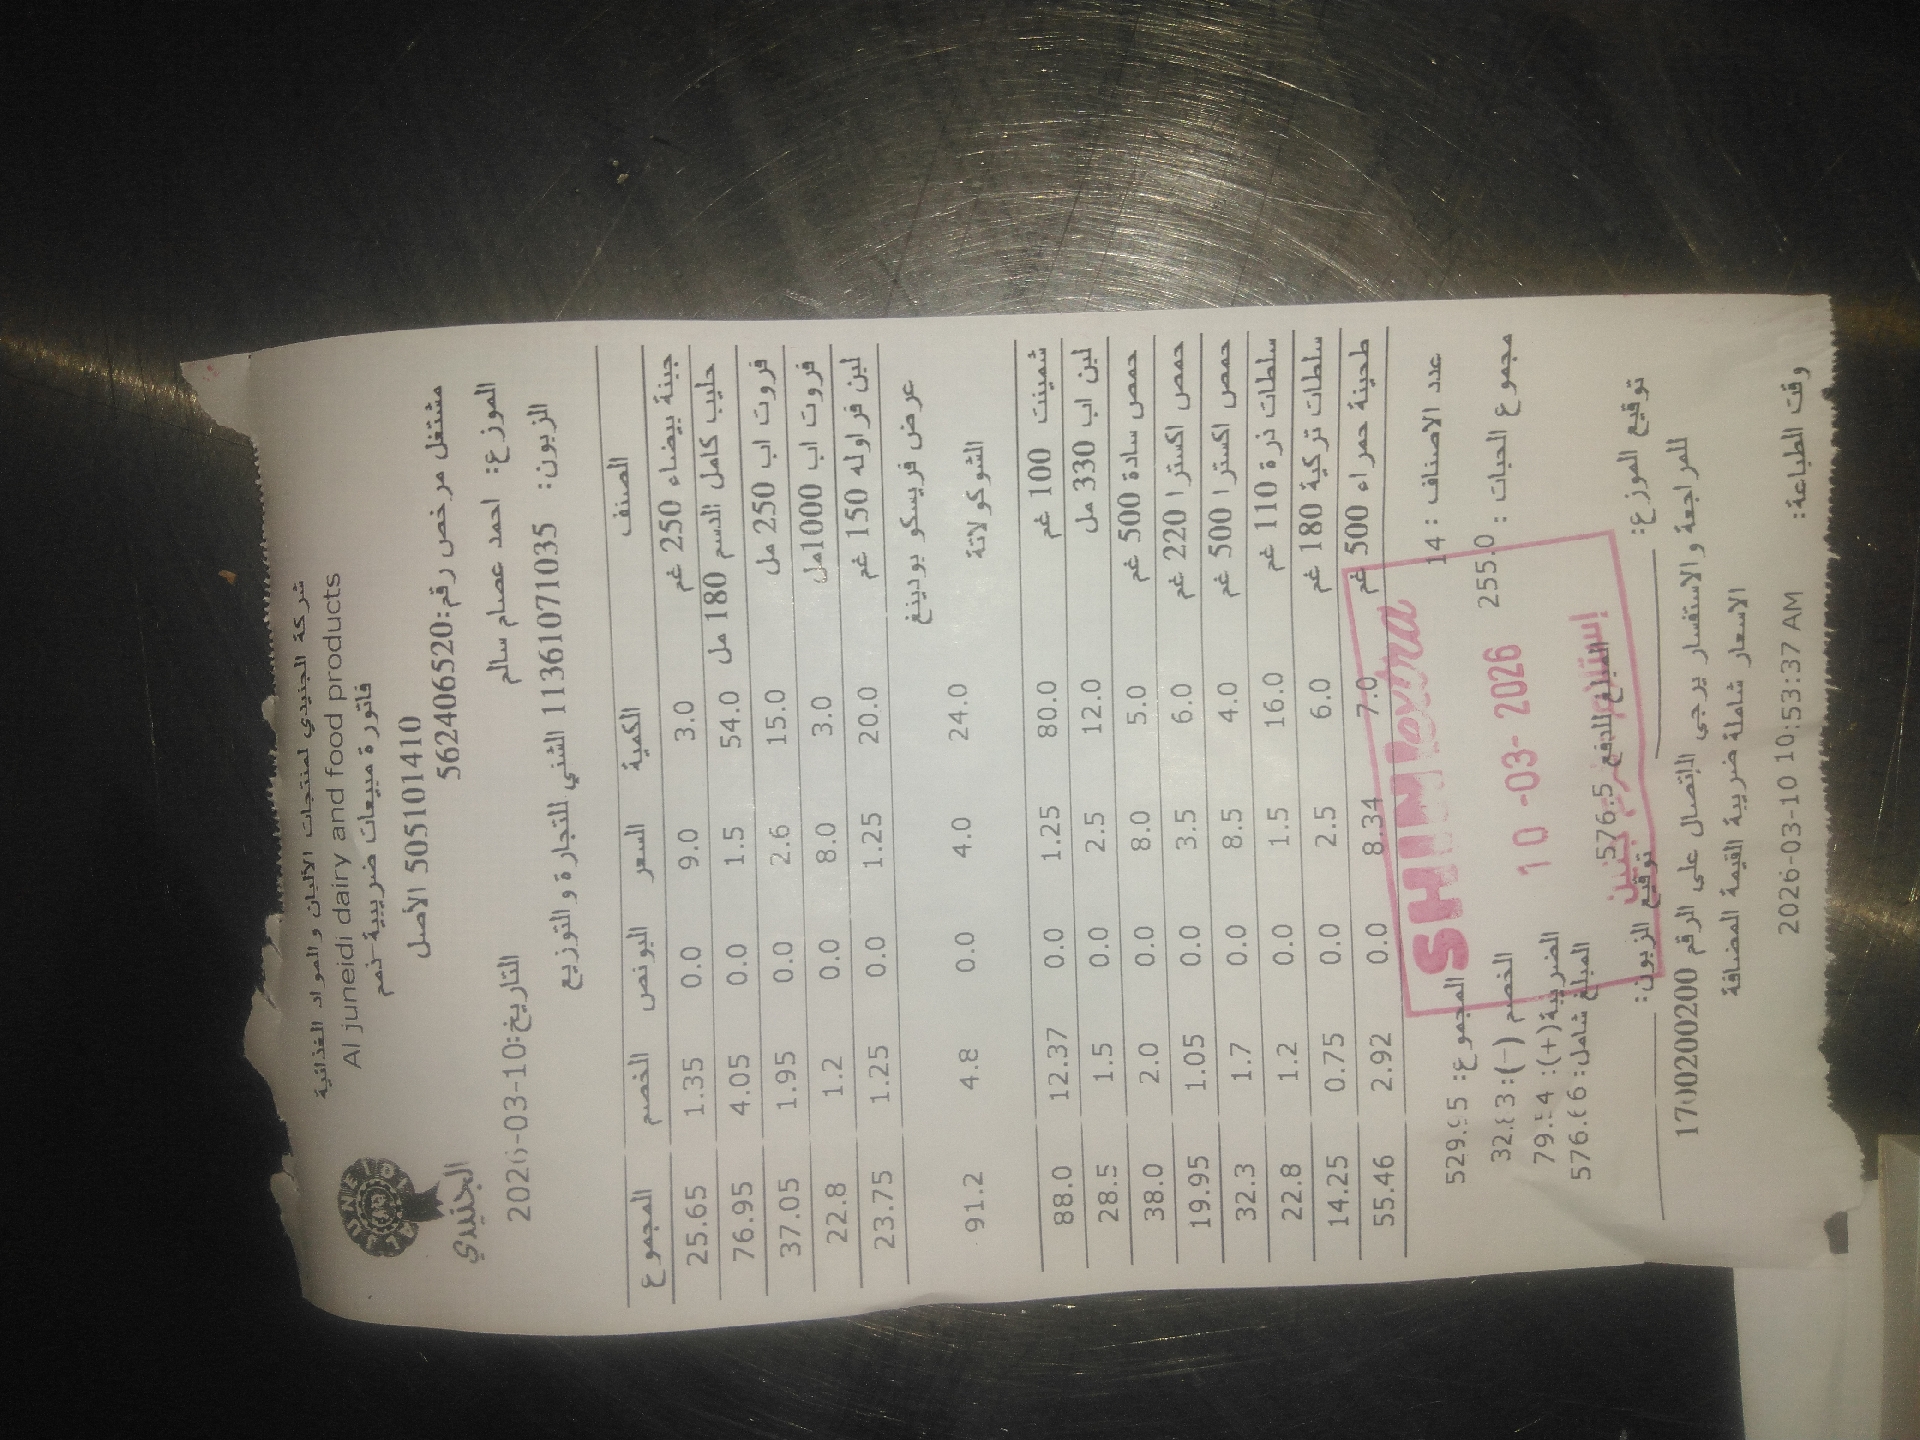 شركة الجنيدي لمنتجات الألبان و المواد الغذائية
Al juneidi dairy and food products
فاتورة مبيعات ضريبية-ذمم
505101410 الأصل
مشتغل مرخص رقم:562406520
الجنيدي
الموزع: احمد عصام سالم
التاريخ:2026-03-10
الزبون: 11361071035 الشني للتجارة و التوزيع
الصنف الكمية السعر البونص الخصم المجموع
جبنة بيضاء 250 غم 3.0 9.0 0.0 1.35 25.65
حليب كامل الدسم 180 مل 54.0 1.5 0.0 4.05 76.95
فروت اب 250 مل 15.0 2.6 0.0 1.95 37.05
فروت اب 1000مل 3.0 8.0 0.0 1.2 22.8
لبن فراوله 150 غم 20.0 1.25 0.0 1.25 23.75
عرض فريسكو بودينغ
الشوكولاتة 24.0 4.0 0.0 4.8 91.2
شمينت 100 غم 80.0 1.25 0.0 12.37 88.0
لبن اب 330 مل 12.0 2.5 0.0 1.5 28.5
حمص سادة 500 غم 5.0 8.0 0.0 2.0 38.0
حمص اكسترا 220 غم 6.0 3.5 0.0 1.05 19.95
حمص اكسترا 500 غم 4.0 8.5 0.0 1.7 32.3
سلطات ذرة 110 غم 16.0 1.5 0.0 1.2 22.8
سلطات تركية 180 غم 6.0 2.5 0.0 0.75 14.25
طحينة حمراء 500 غم 7.0 8.34 0.0 2.92 55.46
عدد الاصناف : 14
المجموع: 529.95
مجموع الحبات : 255.0
الخصم (-):
الضريبة(+):
المبلغ شامل:
المبلغ للدفع 576.5
SHINI extra
10 -03- 2026
إستلام
جنين
توقيع الموزع:
توقيع الزبون:
للمراجعة و الاستفسار يرجى الاتصال على الرقم 1700200200
الاسعار شاملة ضريبة القيمة المضافة
وقت الطباعة: 2026-03-10 10:53:37 AM